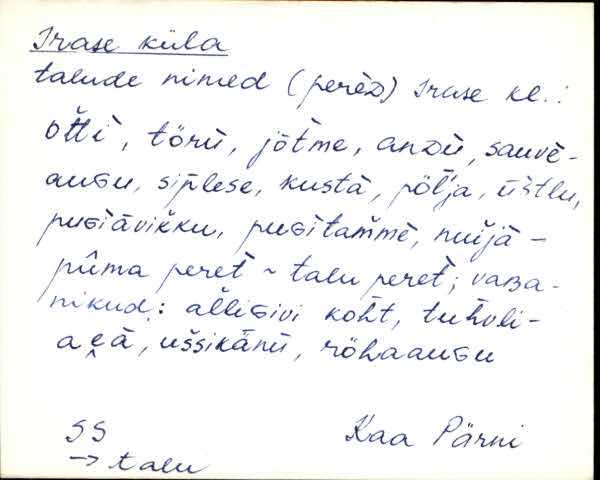 Irase küla
talude nimed (perèᴅ) Irase kl.:
ot̆ti, töru, jõtme, anᴅu, sauvè-
auɢu, siplese, kustà, põlja, üstlu,
puɢiàvik̆ku, puɢitam̆mè, nuijà-
pûma peret̀ ~ talu peret̀; vaʙa-
nikud: al̆liɢivi koht, tuhvli-
aeà, uš̆šikänü, rõhaauɢu
SS
→ talu
Kaa Pärni